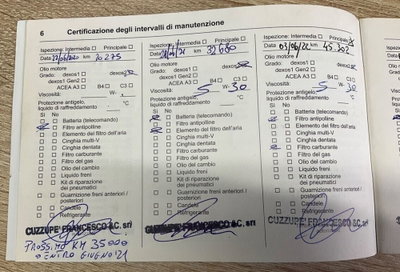 6 Certificazione degli intervalli di manutenzione
Ispezione: Intermedia □ Principale
Data km 20275
Olio motore
Grado: dexos1 □ dexos2
dexos1 Gen2 □
ACEA A3 □ B4 □ C3 □
Viscosità: W-
Protezione antigelo,
liquido di raffreddamento °C
Sì No
Batteria (telecomando)
Filtro antipolline
Elemento del filtro dell'aria
Cinghia multi-V
Cinghia dentata
Filtro carburante
Filtro del gas
Olio del cambio
Liquido freni
Kit di riparazione
dei pneumatici
Guarnizione freni anteriori /
posteriori
Candele
Refrigerante
CUZZUPE' FRANCESCO &C. srl
PROSSIMO KM 35000
O ENTRO GIUGNO '21
Ispezione: Intermedia □ Principale
Data km 32680
Olio motore
Grado: dexos1 □ dexos2
dexos1 Gen2 □
ACEA A3 □ B4 □ C3 □
Viscosità: 5 W- 30
Protezione antigelo,
liquido di raffreddamento °C
Sì No
Batteria (telecomando)
Filtro antipolline
Elemento del filtro dell'aria
Cinghia multi-V
Cinghia dentata
Filtro carburante
Filtro del gas
Olio del cambio
Liquido freni
Kit di riparazione
dei pneumatici
Guarnizione freni anteriori /
posteriori
Candele
Refrigerante
CUZZUPE' FRANCESCO &C. srl
Ispezione: Intermedia □ Principale
Data 03/06/22 km 45.302
Olio motore
Grado: dexos1 □ dexos2
dexos1 Gen2 □
ACEA A3 □ B4 □ C3 □
Viscosità: 5 W- 30
Protezione antigelo,
liquido di raffreddamento °C
Sì No
Batteria (telecomando)
Filtro antipolline
Elemento del filtro dell'aria
Cinghia multi-V
Cinghia dentata
Filtro carburante
Filtro del gas
Olio del cambio
Liquido freni
Kit di riparazione
dei pneumatici
Guarnizione freni anteriori /
posteriori
Candele
Refrigerante
CUZZUPE' FRANCESCO &C. srl